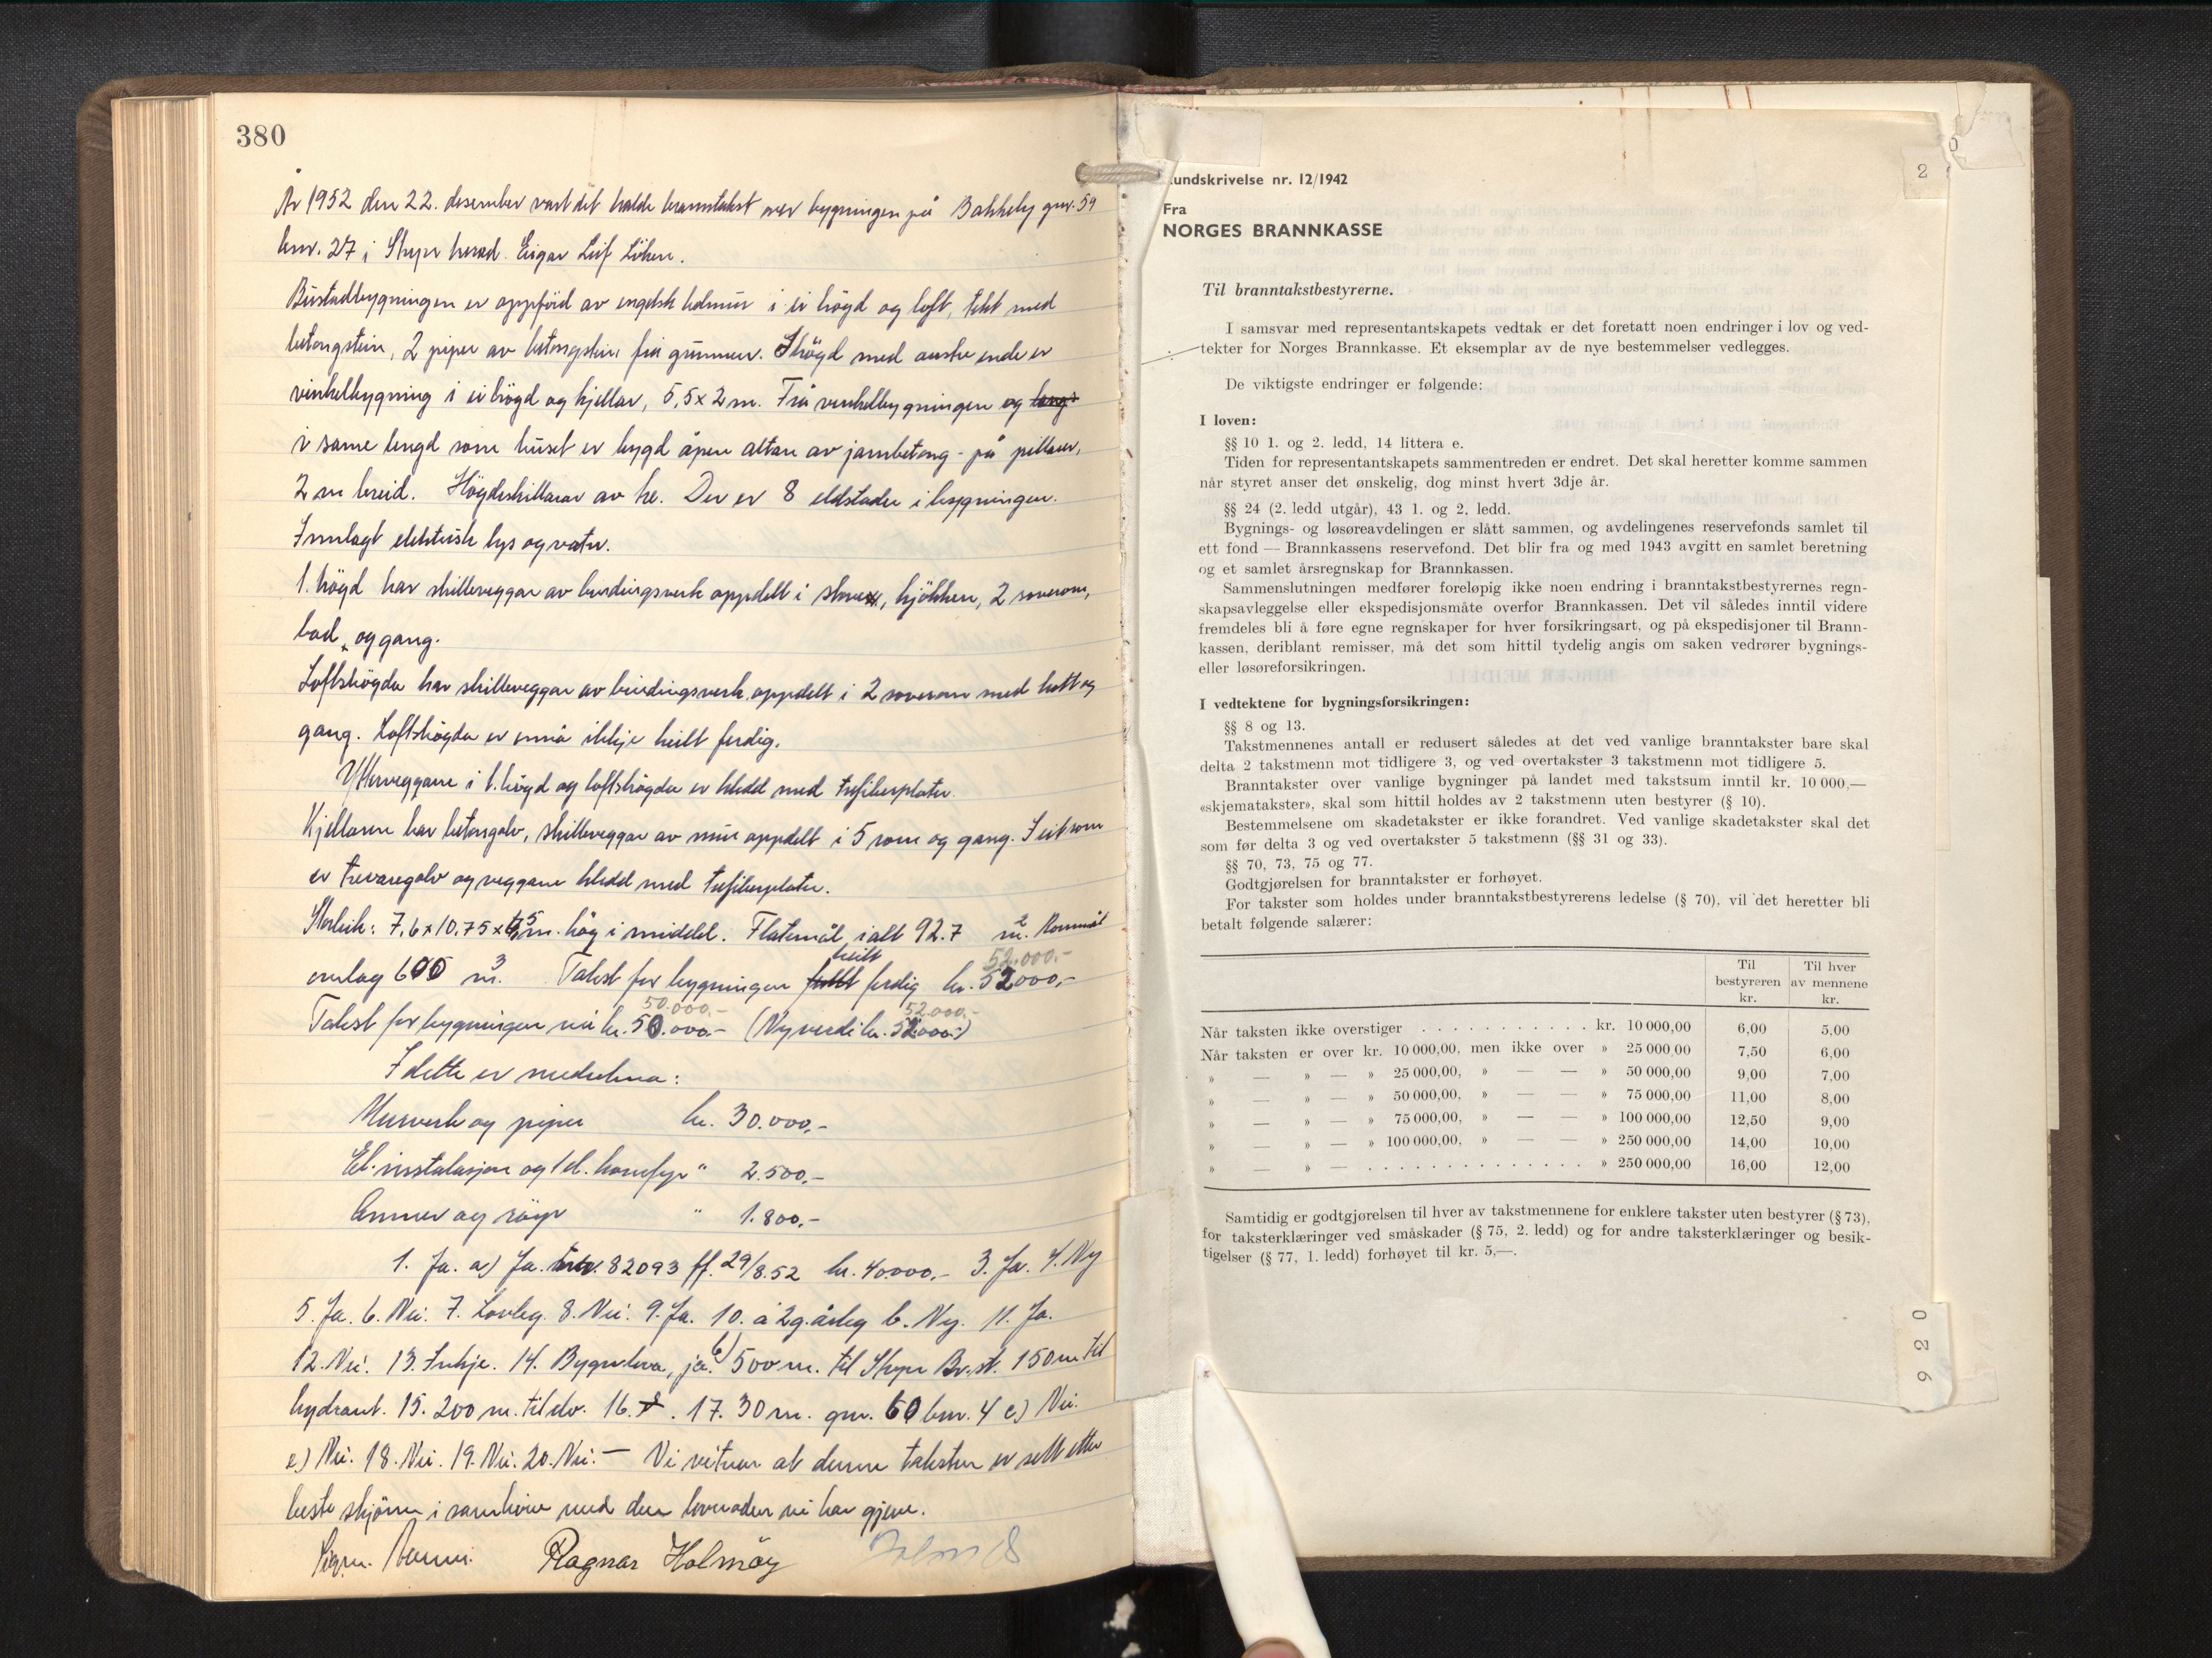 380
År 1952 den 22. desember vart det halde branntakst over bygningen på Bakkely gnr. 59
bnr. 27 i Stryn herad. Eigar Leif
Bustadbygningen er oppförd av engelsk holmur i ei högd og loft, tekt med
betongstein, 2 piper av betongstein frå grunnen. I högd med austre ende er
vinkelbygning i ei högd og kjellar, 5,5 x 2 m. Frå vinkelbygningen og
i same lengd som huset er bygd åpen altan av jarnbetong - på pillarar,
2 m breid. Högdeskillarar av tre. Der er 8 eldstader i bygningen.
Innlagt elektrisk lys og vatn.
1. högd har skilleveggar av bindingsverk oppdelt i stove, kjökken, 2 soverom,
bad, og gang.
Loftshögda har skilleveggar av bindingsverk oppdelt i 2 soverom med kott og
gang. Loftshögda er ennå ikkje heilt ferdig.
Ytterveggane i 1. högd og loftshögda er kledd med trefiberplater.
Kjellaren har betongolv, skilleveggar av mur oppdelt i 5 rom og gang. I eit rom
er trevaregolv og veggane kledd med trefiberplater.
Storleik: 7,6 x 10,75 x 6,5 m. hög i middel. Flatemål ialt 92.7 m². Rommål
omlag 605 m³. Takst for bygningen heilt ferdig kr. 52000,-
52.000.-
Takst for bygningen nå kr. 50.000.- (Nyverdi kr. 52000.-)
50.000,- 52.000,-
I dette er medrekna:
Murverk og piper kr. 30.000,-
El. instalasjon og 1 el. komfyr " 2.500,-
Omner og röyr " 1.800,-
1. Ja. a) Ja. nr. 82093 ff. 29/8.52 kr. 40000.- 3. Ja. 4. Ny
5. Ja. 6. Nei. 7. Lovleg. 8. Nei. 9. Ja. 10. a 2 g. årleg b. Ny. 11. Ja.
12. Nei. 13. Inkje. 14. Bygn.lova, ja. b) 500 m. til Stryn Br.st. 150 m til
hydrant. 15. 200 m. til elv. 16. 17. 30 m. gnr. 60 bnr. 4 c) Nei.
e) Nei. 18. Nei. 19. Nei. 20. Nei. — Vi vitnar at denne taksten er sett etter
beste skjönn i samhöve med den lovnaden vi har gjeve.
Sign. Ragnar Holmöy
Rundskrivelse nr. 12/1942
2
Fra
NORGES BRANNKASSE
Til branntakstbestyrerne.
I samsvar med representantskapets vedtak er det foretatt noen endringer i lov og ved-
tekter for Norges Brannkasse. Et eksemplar av de nye bestemmelser vedlegges.
De viktigste endringer er følgende:
I loven:
§§ 10 1. og 2. ledd, 14 littera e.
Tiden for representantskapets sammentreden er endret. Det skal heretter komme sammen
når styret anser det ønskelig, dog minst hvert 3dje år.
§§ 24 (2. ledd utgår), 43 1. og 2. ledd.
Bygnings- og løsøreavdelingen er slått sammen, og avdelingenes reservefonds samlet til
ett fond — Brannkassens reservefond. Det blir fra og med 1943 avgitt en samlet beretning
og et samlet årsregnskap for Brannkassen.
Sammenslutningen medfører foreløpig ikke noen endring i branntakstbestyrernes regn-
skapsavleggelse eller ekspedisjonsmåte overfor Brannkassen. Det vil således inntil videre
fremdeles bli å føre egne regnskaper for hver forsikringsart, og på ekspedisjoner til Brann-
kassen, deriblant remisser, må det som hittil tydelig angis om saken vedrører bygnings-
eller løsøreforsikringen.
I vedtektene for bygningsforsikringen:
§§ 8 og 13.
Takstmennenes antall er redusert således at det ved vanlige branntakster bare skal
delta 2 takstmenn mot tidligere 3, og ved overtakster 3 takstmenn mot tidligere 5.
Branntakster over vanlige bygninger på landet med takstsum inntil kr. 10 000,—
«skjematakster», skal som hittil holdes av 2 takstmenn uten bestyrer (§ 10).
Bestemmelsene om skadetakster er ikke forandret. Ved vanlige skadetakster skal det
som før delta 3 og ved overtakster 5 takstmenn (§§ 31 og 33).
§§ 70, 73, 75 og 77.
Godtgjørelsen for branntakster er forhøyet.
For takster som holdes under branntakstbestyrerens ledelse (§ 70), vil det heretter bli
betalt følgende salærer:
Til bestyreren kr. Til hver av mennene kr.
Når taksten ikke overstiger . . . . . . . . . . . kr. 10 000,00 6,00 5,00
Når taksten er over kr. 10 000,00, men ikke over » 25 000,00 7,50 6,00
» — » — » 25 000,00, » — — » 50 000,00 9,00 7,00
» — » — » 50 000,00, » — — » 75 000,00 11,00 8,00
» — » — » 75 000,00, » — — » 100 000,00 12,50 9,00
» — » — » 100 000,00, » — — » 250 000,00 14,00 10,00
» — » — . . . . . . . . . . . . . . . » 250 000,00 16,00 12,00
Samtidig er godtgjørelsen til hver av takstmennene for enklere takster uten bestyrer (§ 73),
for taksterklæringer ved småskader (§ 75, 2. ledd) og for andre taksterklæringer og besik-
tigelser (§ 77, 1. ledd) forhøyet til kr. 5,—.
920